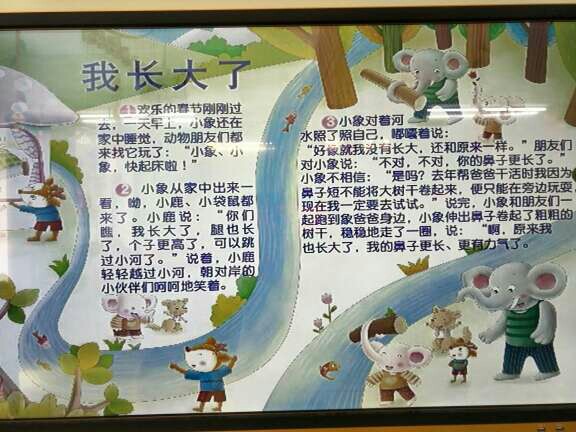 我长大了
1 欢乐的春节刚刚过
去，一天早上，小象还在
家中睡觉，动物朋友们都
来找它玩了："小象、小
象，快起床啦！"
2 小象从家中出来一
看，呦，小鹿、小袋鼠都
来了。小鹿说："你们
瞧，我长大了，腿也长
了，个子更高了，可以跳
过小河了。"说着，小鹿
轻轻越过小河，朝对岸的
小伙伴们呵呵地笑着。
3 小象对着河
水照了照自己，嘟囔着说：
"好像就我没有长大，还和原来一样。"朋友们
对小象说："不对，不对，你的鼻子更长了。"
小象不相信："是吗？去年帮爸爸干活时我因为
鼻子短不能将大树干卷起来，便只能在旁边玩耍，
现在我一定要去试试。"说完，小象和朋友们一
起跑到象爸爸身边，小象伸出鼻子卷起了粗粗的
树干，稳稳地走了一圈，说："啊，原来我
也长大了，我的鼻子更长、更有力气了。"